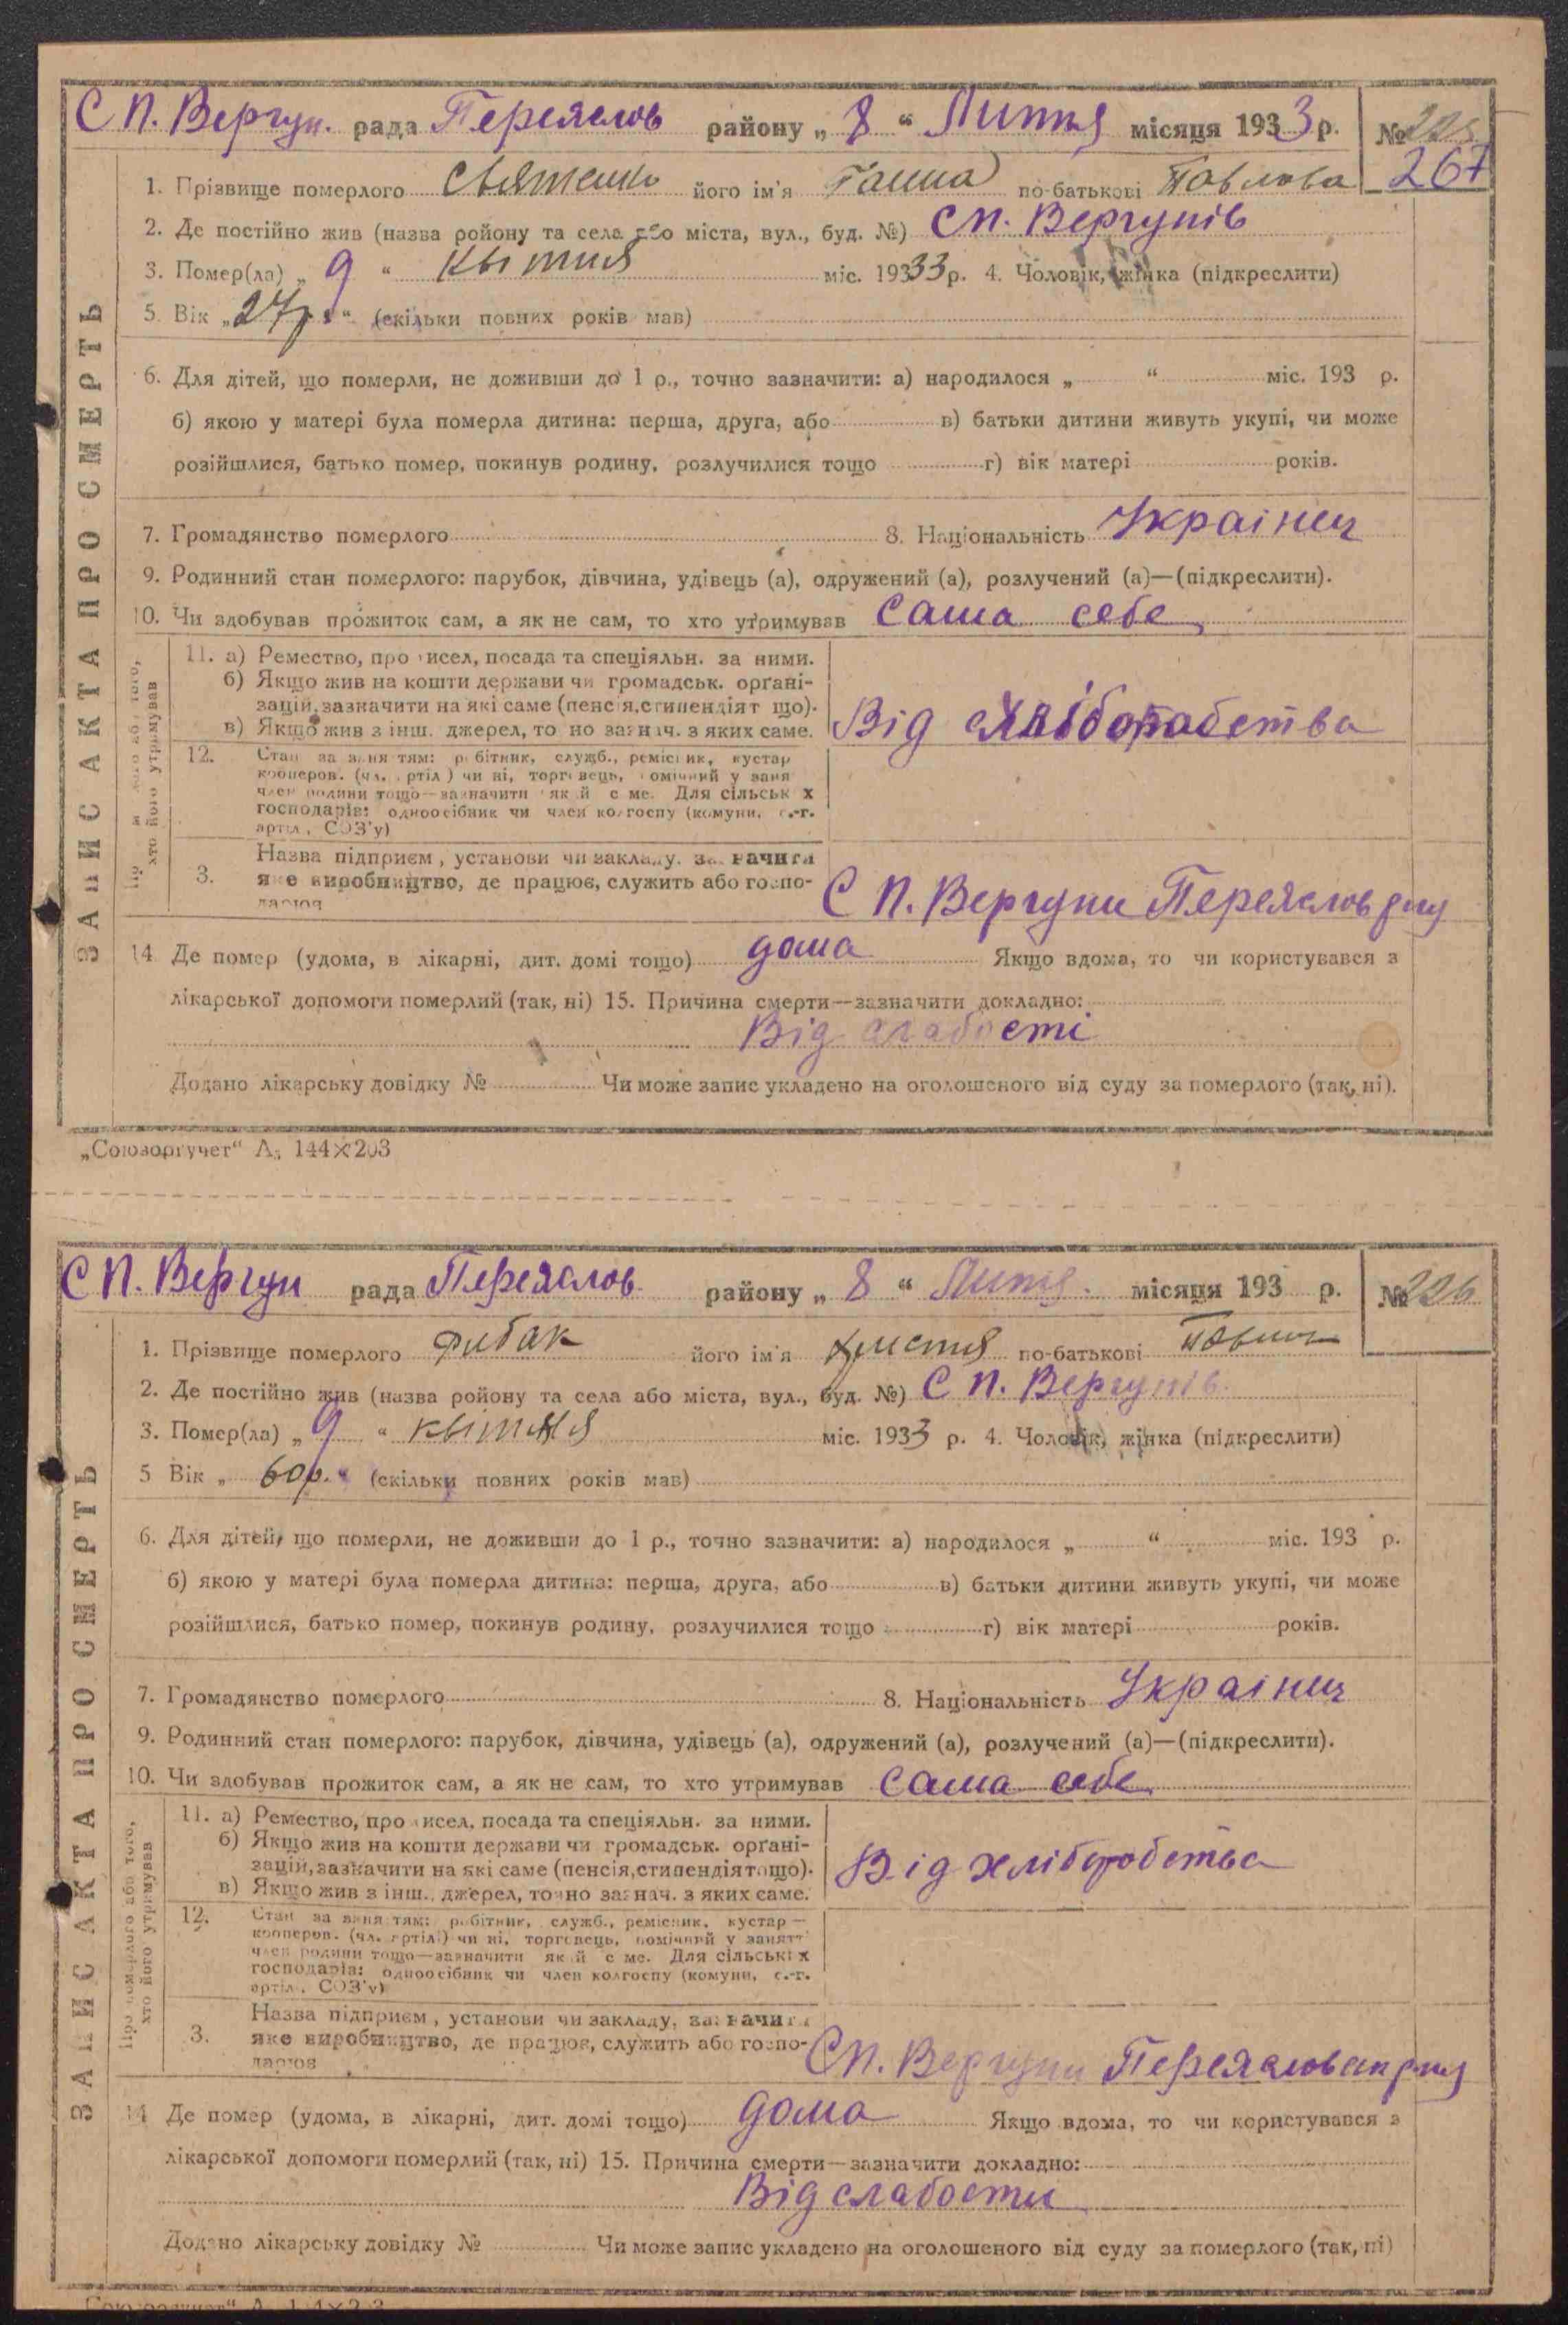 ЗАПИС АКТА ПРО СМЕРТЬ
С П. Вергун. рада Переяслов району „ 8 “ Липня місяця 1933 р. № 225
267
1. Прізвище померлого Святенко його ім'я Ганна по-батькові Павлова
2. Де постійно жив (назва ройону та села або міста, вул., буд. №) СП. Вергунів
3. Помер(ла) „ 9 “ Квітня міс. 193 33 р. 4. Чоловік, жінка (підкреслити)
5. Вік „ 27 р. “ (скільки повних років мав)
6. Для дітей, що померли, не доживши до 1 р., точно зазначити: а) народилося „ “ міс. 193 р.
б) якою у матері була померла дитина: перша, друга, або в) батьки дитини живуть укупі, чи може
розійшлися, батько помер, покинув родину, розлучилися тощо г) вік матері років.
7. Громадянство померлого 8. Національність Украінец
9. Родинний стан померлого: парубок, дівчина, удівець (а), одружений (а), розлучений (а)—(підкреслити).
10. Чи здобував прожиток сам, а як не сам, то хто утримував Сама себе
хто його утримував
11. а) Ремество, про исел, посада та спеціяльн. за ними.
б) Якщо жив на кошти держави чи громадськ. орґані-
зацій, зазначити на які саме (пенсія, стипендіят що).
в) Якщо жив з інш. джерел, то но зазнач. з яких саме.
Від хліборобства
12. Стан за заняттям: робітник, служб., ремісник, кустар
кооперов. (чл. артіл) чи ні, торговець, помічний у занят
член родини тощо—зазначити який саме. Для сільськ х
господарів: одноосібник чи член колгоспу (комуни, с.-г.
артіл, СОЗ'у)
3. Назва підприєм, установи чи закладу, зазначити
яке виробництво, де працює, служить або госпо-
дарює
С П. Вергуни Переяслов рну
14 Де помер (удома, в лікарні, дит. домі тощо) дома Якщо вдома, то чи користувався з
лікарської допомоги померлий (так, ні) 15. Причина смерти—зазначити докладно:
Від слабості
Додано лікарську довідку № Чи може запис укладено на оголошеного від суду за померлого (так, ні).
„Союзоргучет“ А₅ 144×203
ЗАПИС АКТА ПРО СМЕРТЬ
С П. Вергун рада Переяслов району „ 8 “ Липня місяця 193 р. № 226
1. Прізвище померлого Рибак його ім'я Христя по-батькові
2. Де постійно жив (назва ройону та села або міста, вул., буд. №) С П. Вергунів
3. Помер(ла) „ 9 “ Квітня міс. 1933 р. 4. Чоловік, жінка (підкреслити)
5 Вік „ 60 р. “ (скільки повних років мав)
6. Для дітей, що померли, не доживши до 1 р., точно зазначити: а) народилося „ “ міс. 193 р.
б) якою у матері була померла дитина: перша, друга, або в) батьки дитини живуть укупі, чи може
розійшлися, батько помер, покинув родину, розлучилися тощо г) вік матері років.
7. Громадянство померлого 8. Національність Украінец
9. Родинний стан померлого: парубок, дівчина, удівець (а), одружений (а), розлучений (а)—(підкреслити).
10. Чи здобував прожиток сам, а як не сам, то хто утримував Сама себе
Про померлого або того,
хто його утримував
11. а) Ремество, про исел, посада та спеціяльн. за ними.
б) Якщо жив на кошти держави чи громадськ. орґані-
зацій, зазначити на які саме (пенсія, стипендія тощо).
в) Якщо жив з інш. джерел, точно зазнач. з яких саме.
Від хліборобства
12. Стан за заняттям: робітник, служб., ремісник, кустар —
кооперов. (чл. артілі) чи ні, торговець, помічний у занятт
член родини тощо—зазначити який саме. Для сільськ х
господарів: одноосібник чи член колгоспу (комуни, с.-г.
артіл, СОЗ'у)
3. Назва підприєм, установи чи закладу, зазначити
яке виробництво, де працює, служить або госпо-
дарює
СП. Вергуни Переяслов рну
14 Де помер (удома, в лікарні, дит. домі тощо) дома Якщо вдома, то чи користувався з
лікарської допомоги померлий (так, ні) 15. Причина смерти—зазначити докладно:
Від слабости
Додано лікарську довідку № Чи може запис укладено на оголошеного від суду за померлого (так, ні)